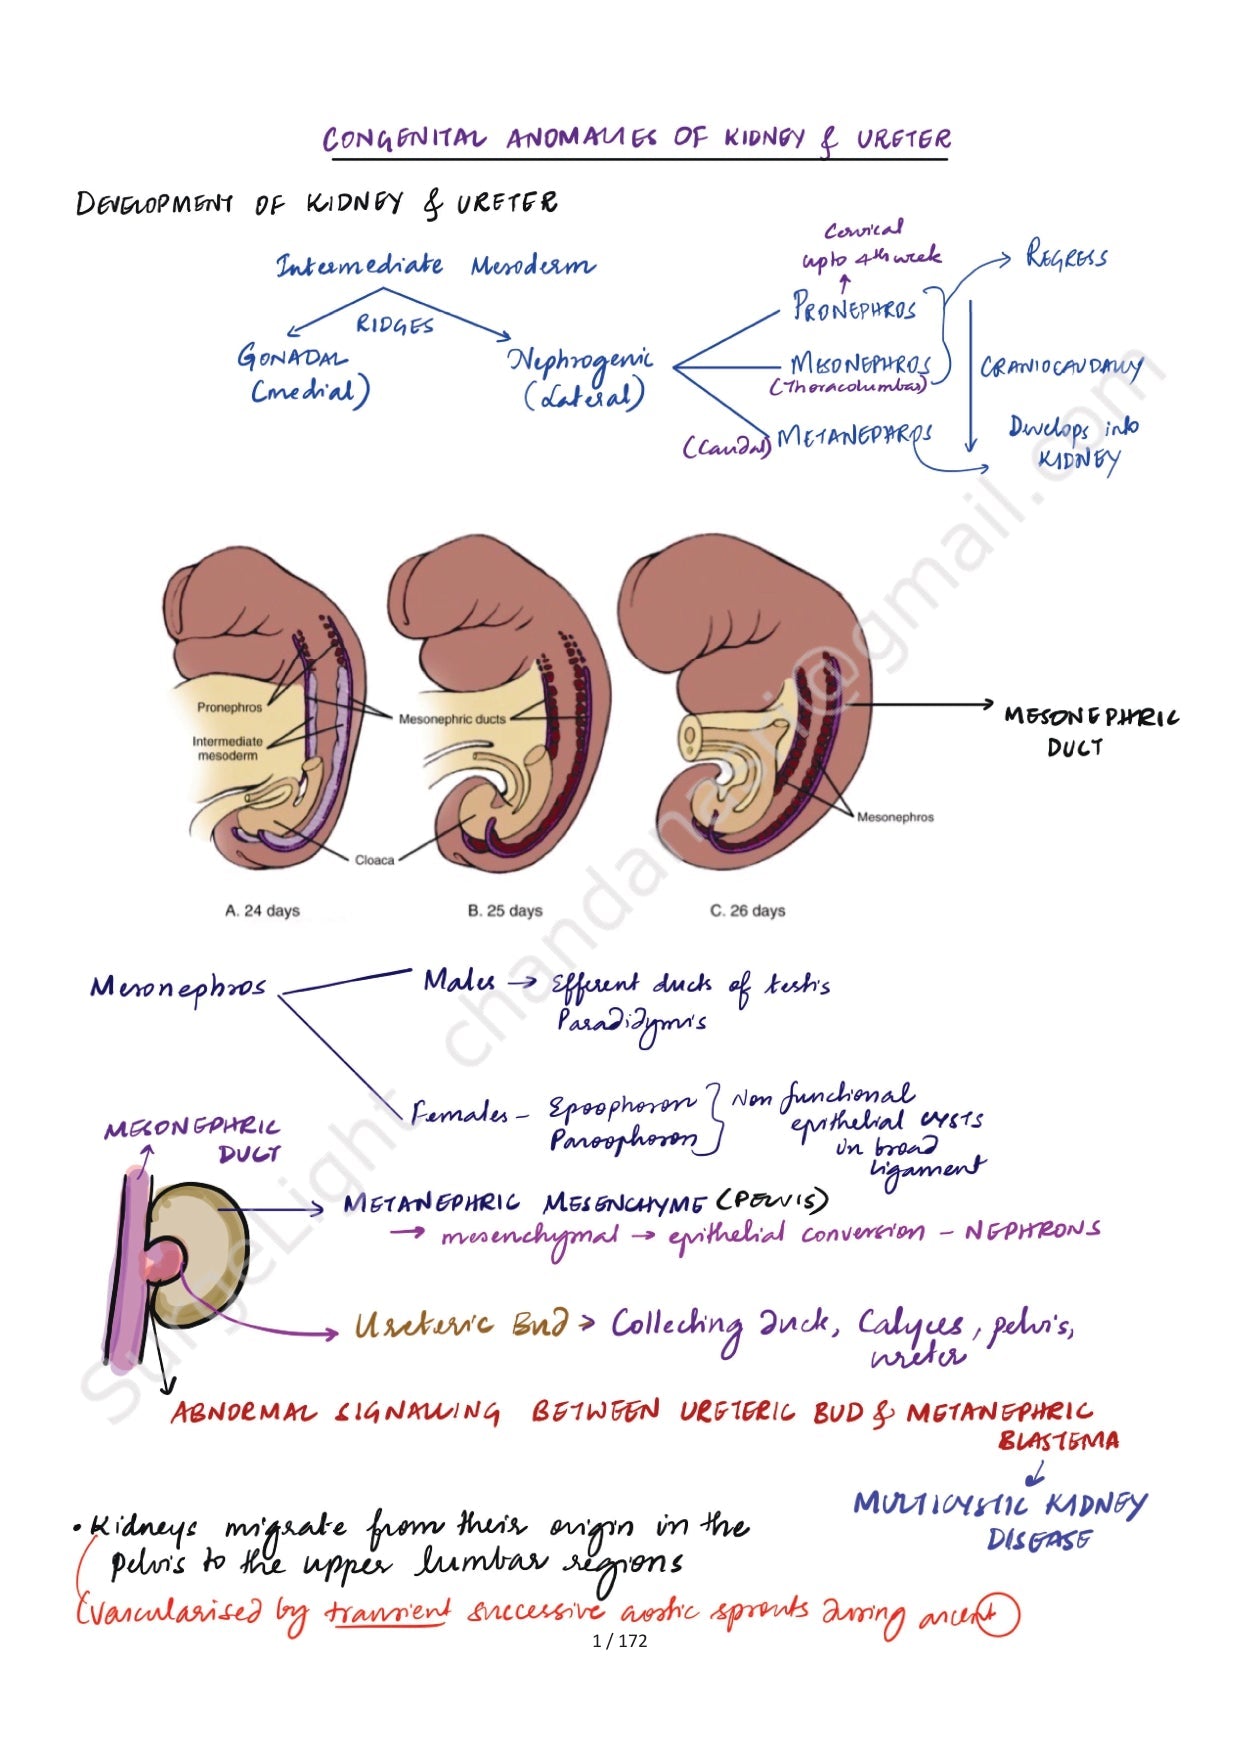 CONGENITAL ANOMALIES OF KIDNEY & URETER
DEVELOPMENT OF KIDNEY & URETER
Intermediate Mesoderm
RIDGES
GONADAL
(medial)
Nephrogenic
(Lateral)
Cervical
upto 4th week
PRONEPHROS
MESONEPHROS
(Thoracolumbar)
(Caudal) METANEPHROS
REGRESS
CRANIOCAUDALLY
Develops into
KIDNEY
Pronephros
Intermediate
mesoderm
Mesonephric ducts
Cloaca
MESONEPHRIC
DUCT
Mesonephros
A. 24 days
B. 25 days
C. 26 days
Mesonephros
Males → Efferent ducts of testis
Paradidymis
Females - Epoophoron
Paroophoron
Non functional
epithelial cysts
in broad
ligament
MESONEPHRIC
DUCT
METANEPHRIC MESENCHYME (PELVIS)
→ mesenchymal → epithelial conversion - NEPHRONS
Ureteric Bud > Collecting duck, Calyces, pelvis,
ureter
ABNORMAL SIGNALLING BETWEEN URETERIC BUD & METANEPHRIC
BLASTEMA
MULTICYSTIC KIDNEY
DISEASE
• Kidneys migrate from their origin in the
pelvis to the upper lumbar regions
(vascularised by transient successive aortic sprouts during ascent)
1 / 172
SurgeLight chandanasri@gmail.com